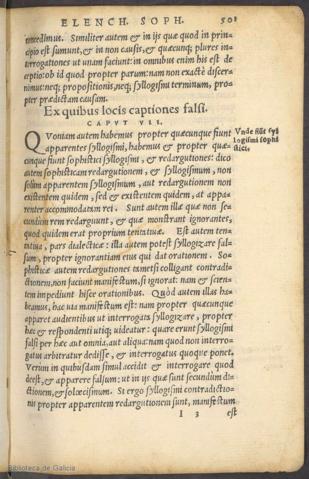 ELENCH. SOPH. 501
cincdimus. Similiter autem & in ijs quæ quod in prin-
cipio est sumunt, & in non causis, & quæcunq; plures in-
terrogationes ut unam faciunt: in omnibus enim his est de
ceptio: ob id quod propter parum: nam non exactè discer-
nimus: neq; propositionis, neq; syllogismi terminum, pro-
pter prædictam causam.
Ex quibus locis captiones falsi.
CAPVT VII.
QVoniam autem habemus propter quæcunque fiunt
apparentes syllogismi, habemus & propter quæ
cunque fiunt sophistici syllogismi, & redargutiones: dico
autem sophisticam redargutionem, & syllogismum, non
solùm apparentem syllogismum, aut redargutionem non
existentem quidem, sed & existentem quidem, at appa-
renter accommodatam rei. Sunt autem illæ quæ non se-
cundùm rem redarguunt, & quæ monstrant ignorantes,
quod quidem erat proprium tentatiuæ. Est autem ten-
tatiua, pars dialecticæ: illa autem potest syllogizare fal-
sum, propter ignorantiam eius qui dat orationem. So-
phisticæ autem redargutiones tametsi colligant contradi-
ctionem, non faciunt manifestum, si ignorat: nam & scien-
tem impediunt hisce orationibus. Quòd autem illas ha-
bemus, hac uia manifestum est: nam propter quæcunque
apparet audientibus ut interrogata syllogizare, propter
hæc & respondenti utiq; uideatur: quare erunt syllogismi
falsi per hæc aut omnia, aut aliqua: nam quod non interro-
gatus arbitratur dedisse, & interrogatus quoque ponet.
Verùm in quibusdam simul accidit & interrogare quod
deest, & apparere falsum: ut in ijs quæ sunt secundùm di-
ctionem, & solœcismum. Si ergo syllogismi contradictio-
nis propter apparentem redargutionem sunt, manifestum
I 3 est
Vnde fiũt syl
logismi sophi
stici.
Biblioteca de Galicia